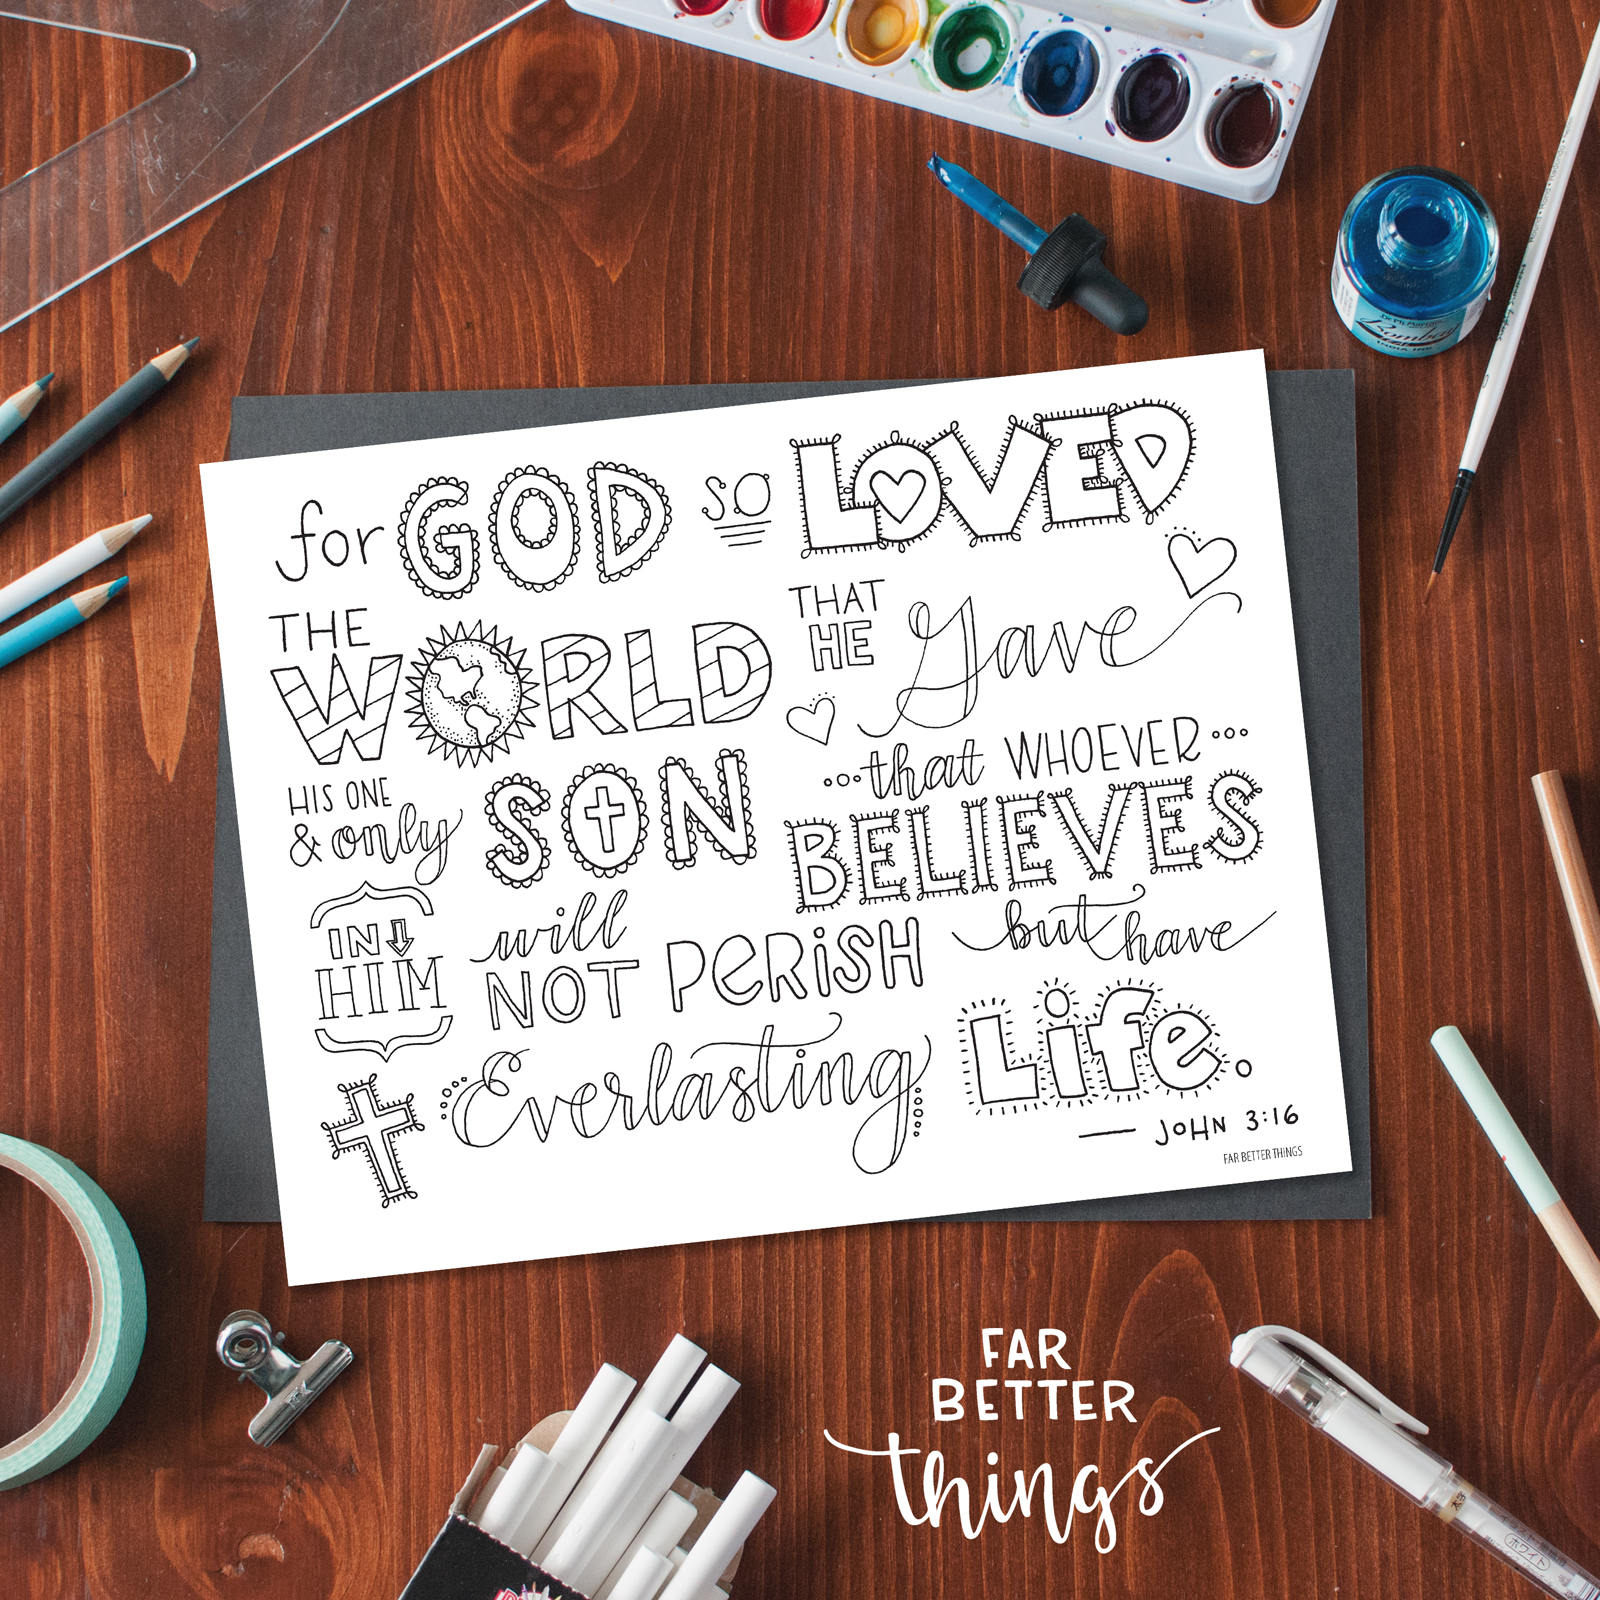 De Mr Martin's
Bombay
INDIA INK
for GOD so LOVED
THE WORLD
THAT HE Gave
HIS ONE & only SON
...that WHOEVER...
BELIEVES
IN HIM
will NOT PERISH
but have
Everlasting Life.
— JOHN 3:16
FAR BETTER THINGS
FAR
BETTER
things
ホワイト